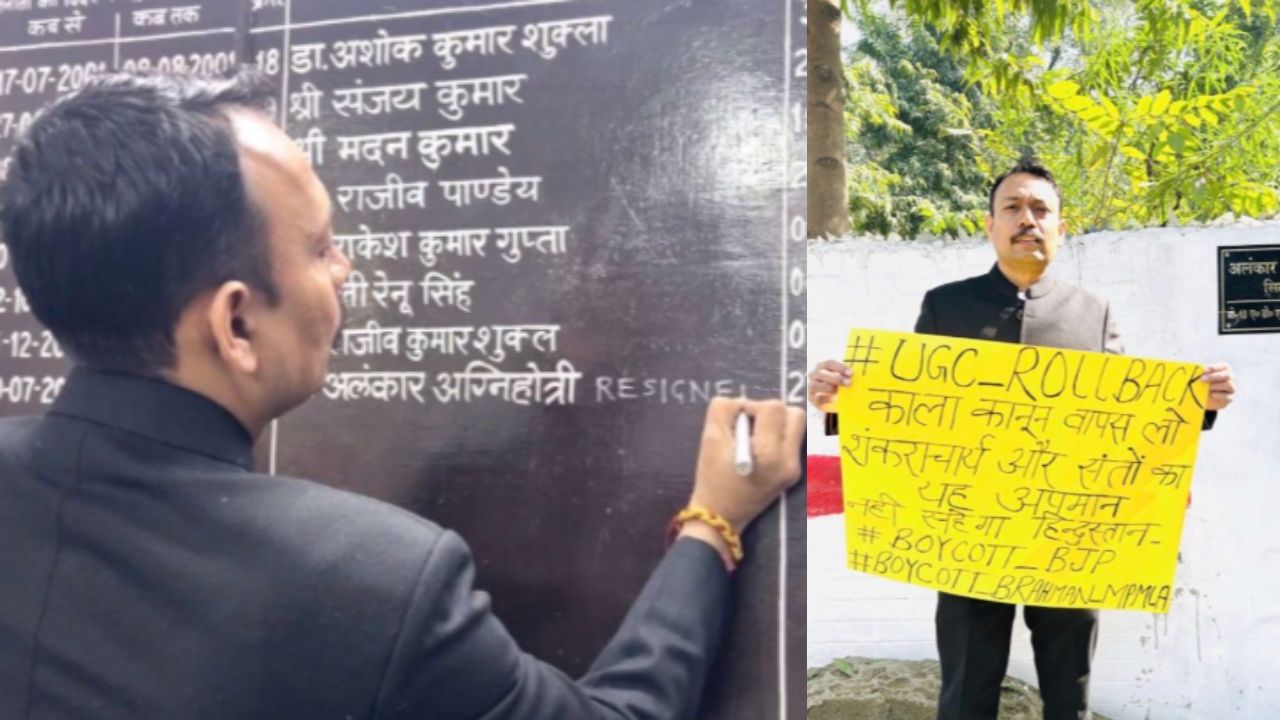 कब से कब तक
17-07-2001 08-08-2001 18 डा.अशोक कुमार शुक्ला
श्री संजय कुमार
मदन कुमार
राजीव पाण्डेय
राकेश कुमार गुप्ता
रेनू सिंह
राजीव कुमार शुक्ल
अलंकार अग्निहोत्री RESIGNE
#UGC_ROLLBACK
काला कानून वापस लो
शंकराचार्य और संतों का
यह अपमान
नहीं सहेगा हिन्दुस्तान-
#BOYCOTT_BJP
#BOYCOTT_BRAHMAN_MPMLA
अलंकार